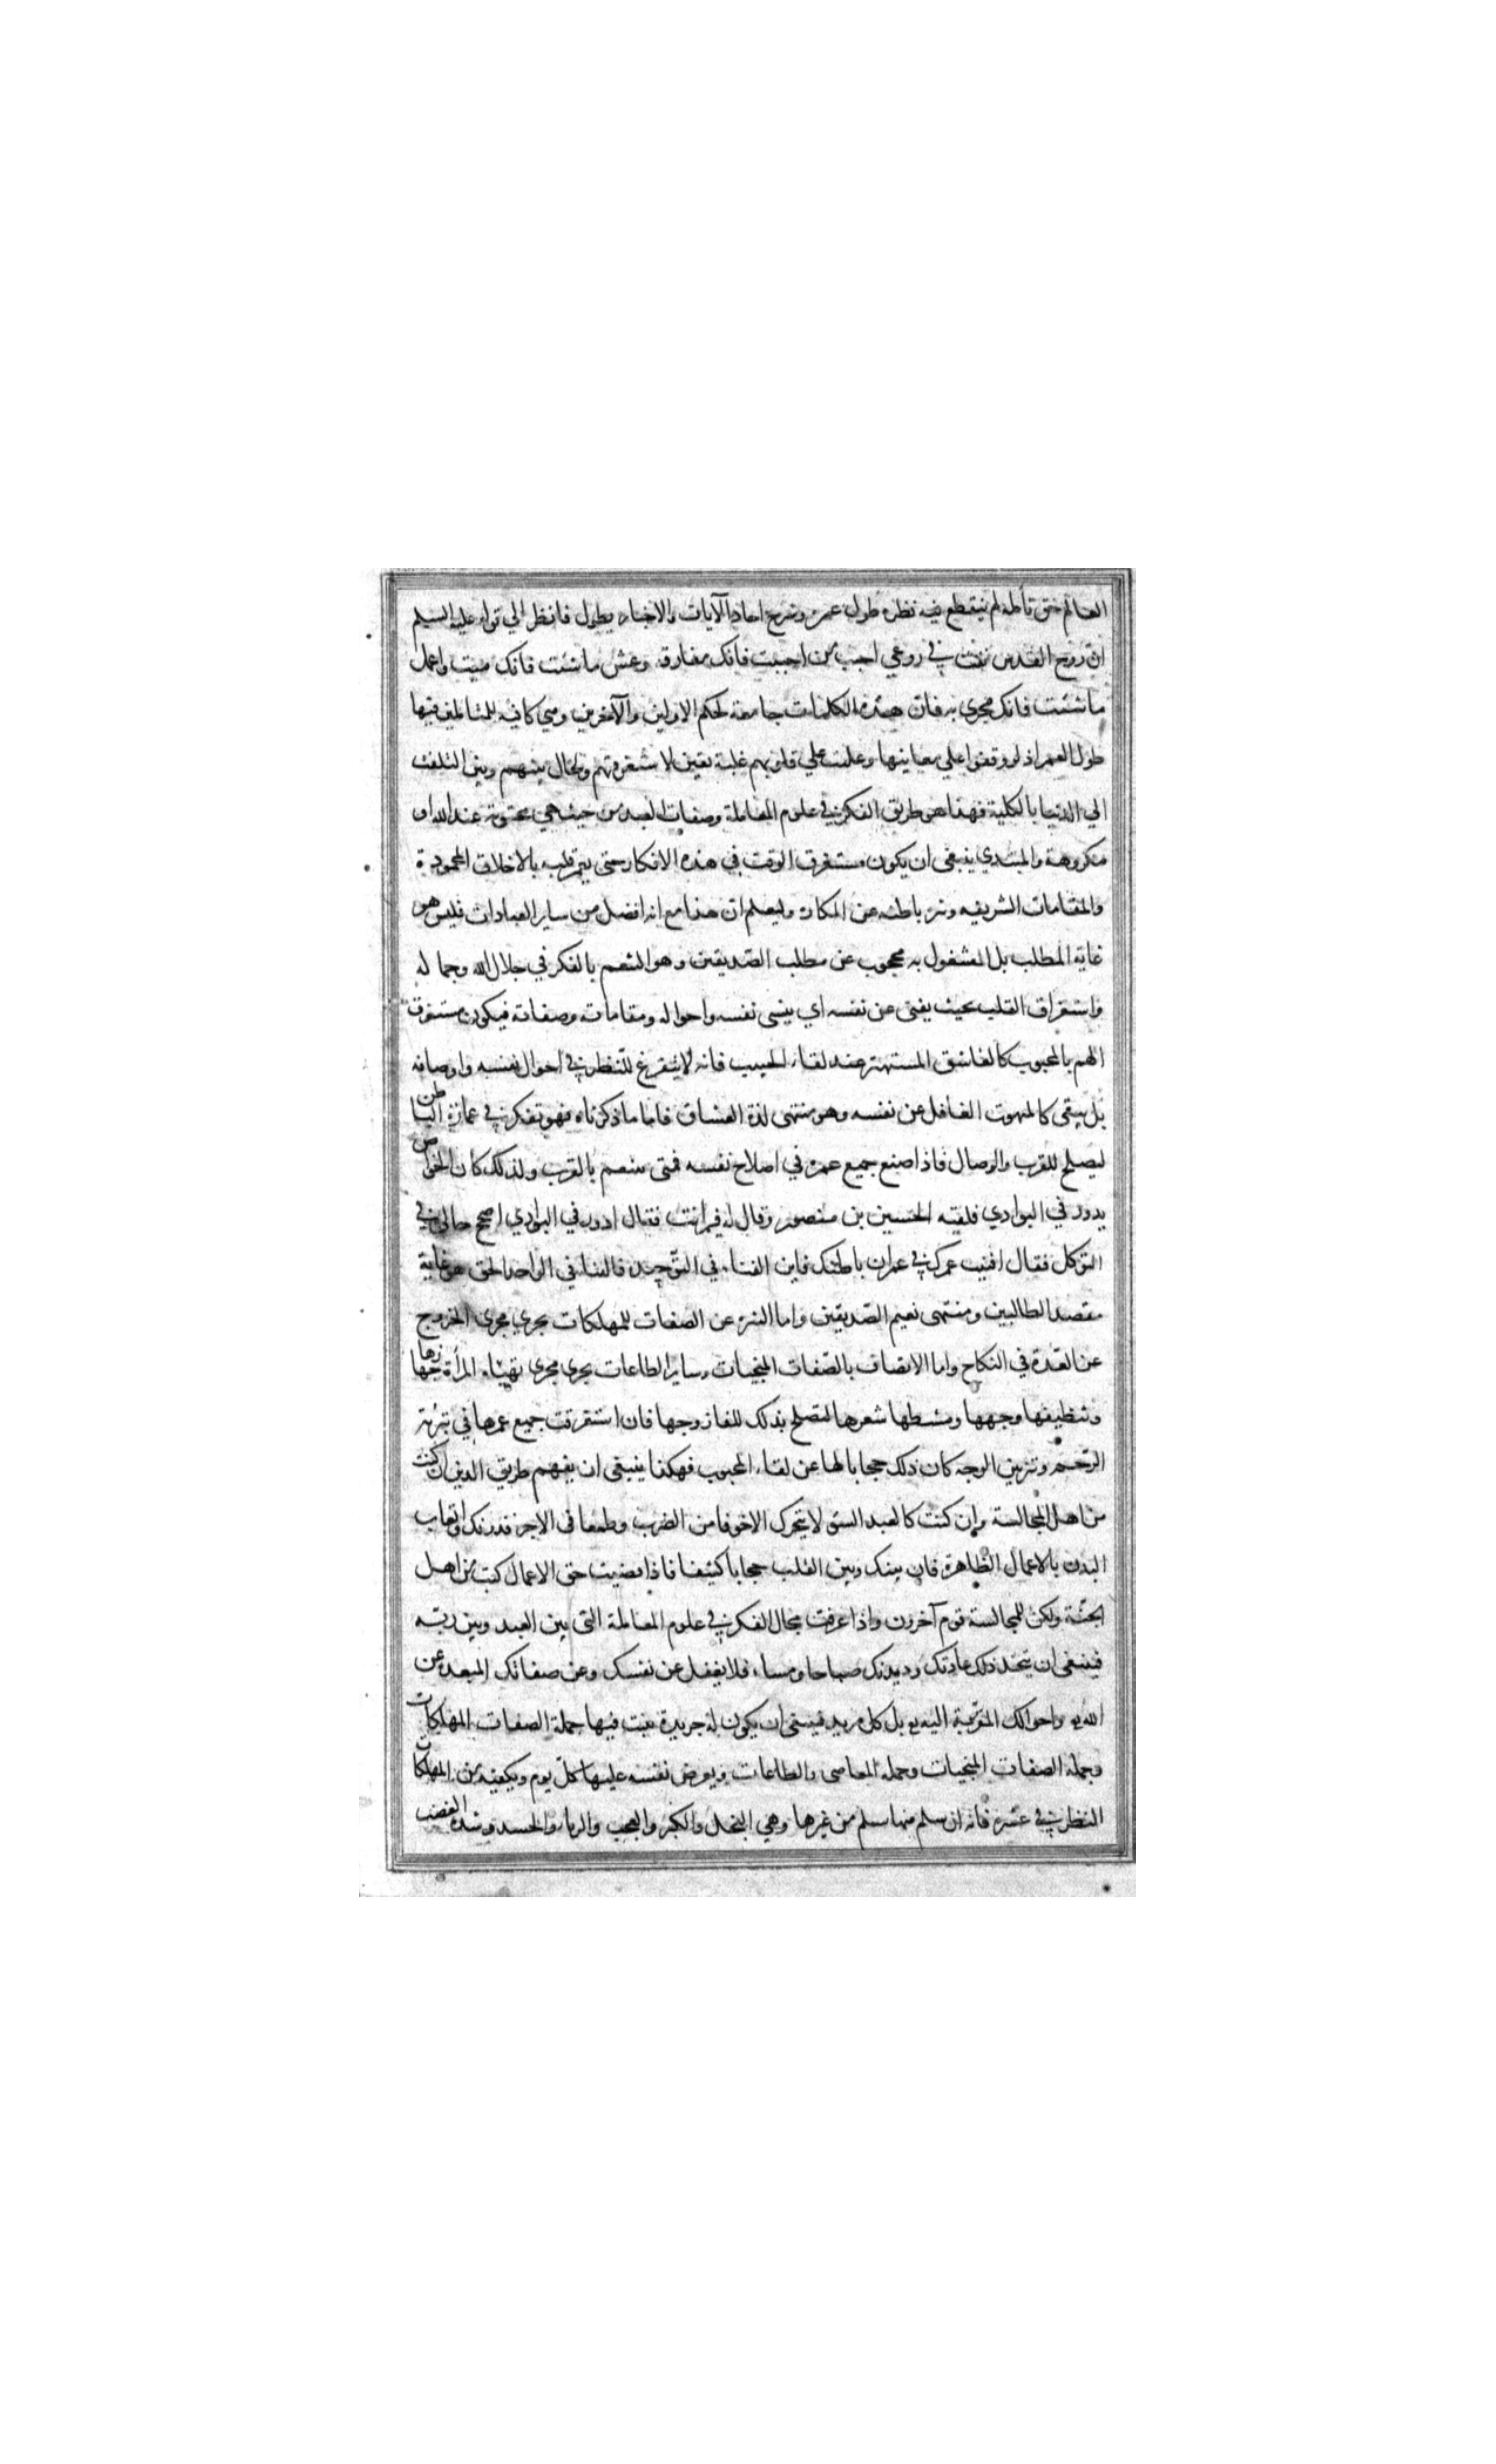 العالم حق تأمله لم ينقطع فيه نظره طول عمره وشرح احاد الآيات والاخبار يطول فانظر الي قوله عليه السلم
ان روح القدس نفث في روعي احبب من احببت فانك مفارقه وعش ماشئت فانك ميت واعمل
ماشئت فانك مجزي به فان هذه الكلمات جامعة لحكم الاولين والآخرين وهي كافيه للمتاملين فيها
طول العمر اذ لو وقفوا علي معانيها وغلبت علي قلوبهم غلبة يقين لاستغرقتهم ولحال بينهم وبين التلفت
الي الدنيا بالكلية فهذا هو طريق الفكر في علوم المعاملة وصفات العبد من حيث هي محبوبة عند الله او
مكروهة والمبتدي ينبغي ان يكون مستغرق الوقت في هذه الافكار حتى يعمر قلبه بالاخلاق المحمودة
والمقامات الشريفه وينزه باطنه عن المكاره وليعلم ان هذا مع انه افضل من ساير العبادات فليس هو
غاية المطلب بل المشغول به محجوب عن مطلب الصديقين وهو التنعم بالفكر في جلال الله وجماله
واستغراق القلب بحيث يفنى عن نفسه اي ينسى نفسه واحواله ومقاماته وصفاته فيكون مستغرق
الهم بالمحبوب كالعاشق المستهتر عند لقاء الحبيب فانه لا يتفرغ للنظر في احوال نفسه واوصافه
بل يبقى كالمبهوت الغافل عن نفسه وهو منتهى لذة العشاق فاما ماذكرناه فهو تفكر في عمارة الباطن
ليصلح للقرب والوصال فاذا ضيع جميع عمره في اصلاح نفسه فمتى يتنعم بالقرب ولذلك كان الخواص
يدور في البوادي فلقيه الحسين بن منصور وقال له فيم انت فقال ادور في البوادي اصحح حالي في
التوكل فقال افنيت عمرك في عمران باطنك فاين الفناء في التوحيد فالفنا في الواحد الحق هو غاية
مقصد الطالبين ومنتهى نعيم الصديقين واما التنزه عن الصفات المهلكات يجري مجرى الخروج
عن العدة في النكاح واما الاتصاف بالصفات المنجيات وساير الطاعات يجرى مجرى تهيئة المرأة جهازها
وتنظيفها وجهها ومشطها شعرها لتصلح بذلك للقاء زوجها فان استغرقت جميع عمرها في تبرئة
الرحم وتزيين الوجه كان ذلك حجابا لها عن لقاء المحبوب فهكذا ينبغي ان يفهم طريق الدين ان كنت
من اهل المجالسة وان كنت كالعبد السوء لا يتحرك الا خوفا من الضرب وطمعا في الاجر فدونك واتعاب
البدن بالاعمال الظاهرة فان بينك وبين القلب حجابا كثيفا فاذا قضيت حق الاعمال كنت من اهل
الجنة ولكن للمجالسة قوم آخرون واذا عرفت مجال الفكر في علوم المعاملة التى بين العبد وبين ربه
فينبغي ان تتخذ ذلك عادتك وديدنك صباحا ومساء فلا يغفل عن نفسك وعن صفاتك المبعدة عن
الله تع واحوالك المقربة اليه تع بل كل مريد فينبغى ان يكون له جريدة يثبت فيها جملة الصفات المهلكات
وجملة الصفات المنجيات وجملة المعاصى والطاعات ويعرض نفسه عليها كل يوم ويكفيه من المهلكات
النظر في عشرة فانه ان سلم منها سلم من غيرها وهي البخل والكبر والعجب والريا والحسد وشدة الغضب